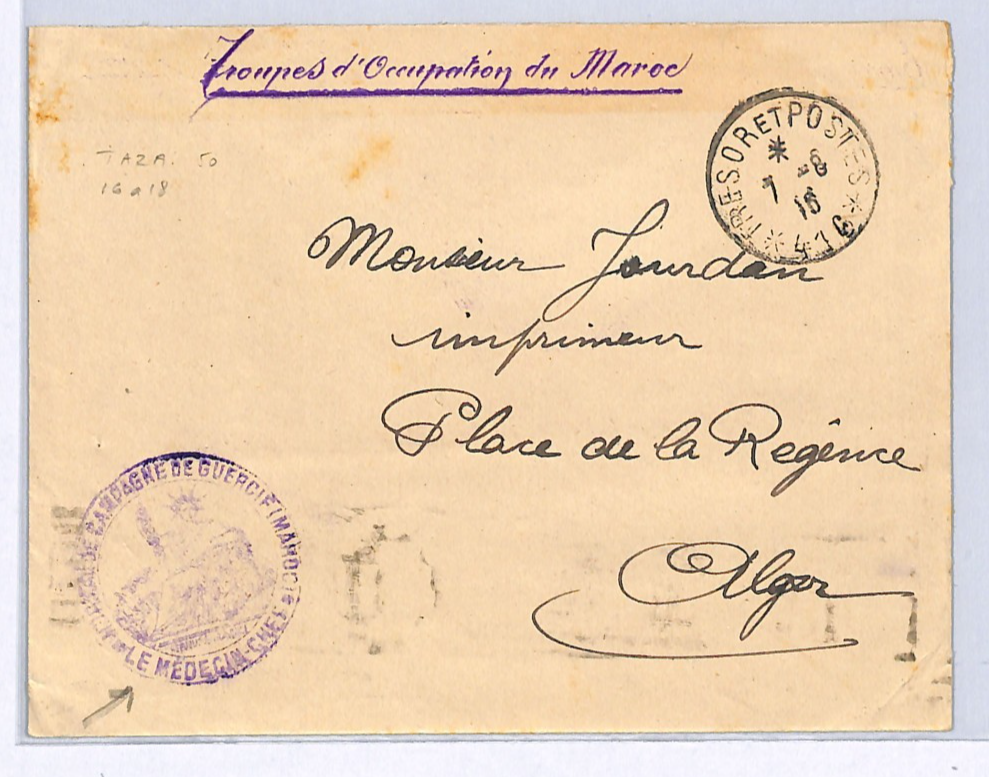 Troupes d'Occupation du Maroc
TRESOR ET POSTES * 
* 7 -8 16
TAZA. 50
16 a 18
Monsieur Jourdan
imprimeur
Place de la Régence
Alger
DE CAMPAGNE DE GUERCIF (MAROC)
LE MÉDECIN-CHEF